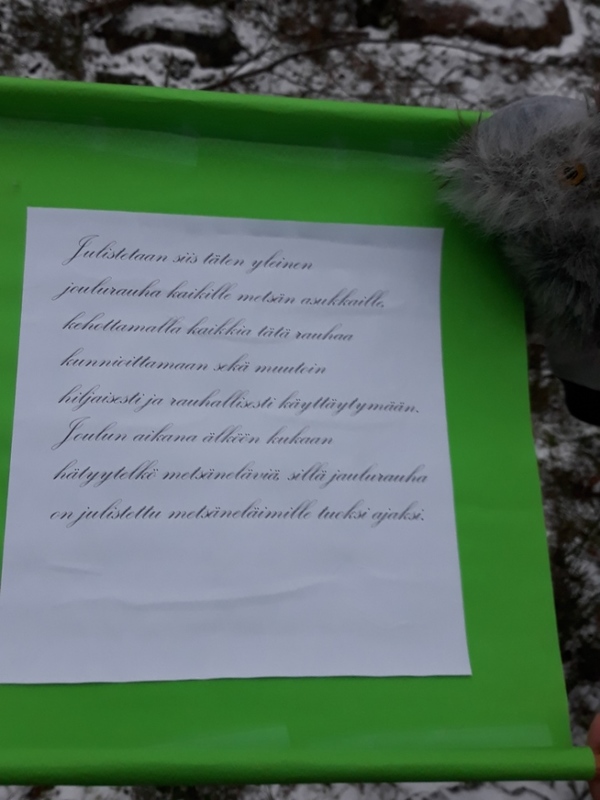 Julistetaan siis täten yleinen
joulurauha kaikille metsän asukkaille,
kehottamalla kaikkia tätä rauhaa
kunnioittamaan sekä muutoin
hiljaisesti ja rauhallisesti käyttäytymään.
Joulun aikana älköön kukaan
hätyytelkö metsäneläviä, sillä joulurauha
on julistettu metsäneläimille tuoksi ajaksi.